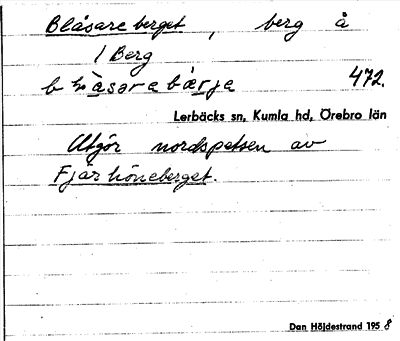 Blåsareberget, berg å
1 Berg
472.
Lerbäcks sn, Kumla hd, Örebro län
Utgör nordspetsen av
Fjärhöneberget.
Dan Höjdestrand 1958